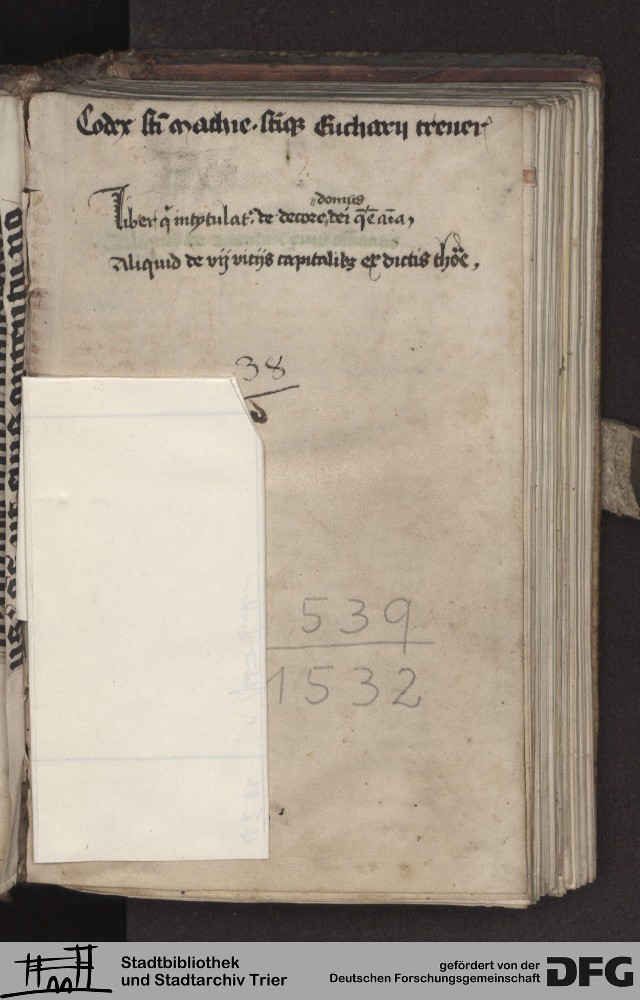 Codex sti mathie · stiq Eucharij treuer
domus
Liber q intytulat de decore dei q e aia,
Aliquid de vij vitijs capitalibz ex dictis thoe,
38
6
539
1532
Stadtbibliothek
und Stadtarchiv Trier
gefördert von der
Deutschen Forschungsgemeinschaft
DFG